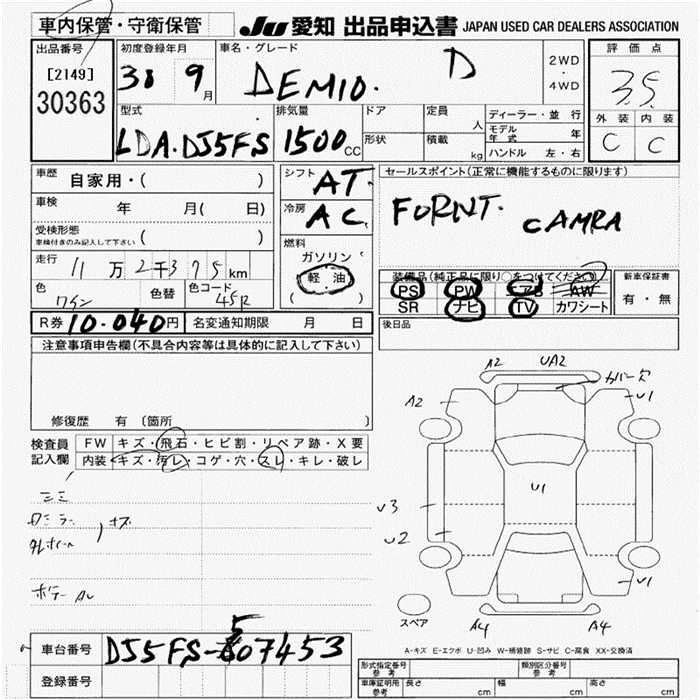 車内保管・守衛保管 JU 愛知 出品申込書 JAPAN USED CAR DEALERS ASSOCIATION
出品番号 [2149] 30363
初度登録年月 30 9月
車名・グレード DEMIO. D
2WD・4WD
評価点 3.5
外装 C 内装 C
型式 LDA.DJ5FS
排気量 1500 CC
ドア 形状
定員 人 積載 kg
ディーラー・並行
モデル年式 年
ハンドル 左・右
車歴 自家用・( )
車検 年 月( 日)
受検形態 車検付きのみ記入して下さい ( )
走行 11万2千375km
色 ワイン 色替 色コード 45R
シフト AT
冷房 AC
燃料 ガソリン 軽油 ( )
セールスポイント(正常に機能するものに限ります)
FORNT. CAMRA
装備品(純正品に限り○をつけてください)
PS PW エアB AW
SR ナビ TV カワシート
新車保証書 有・無
後日品
R券 10.040円 名変通知期限 月 日
注意事項申告欄(不具合内容等は具体的に記入して下さい)
修復歴 有 〔箇所 〕
検査員記入欄
FW キズ・飛石・ヒビ割・リペア跡・X要
内装 キズ・汚レ・コゲ・穴・スレ・キレ・破レ
キズ
A2 UA2 カバー欠
A2 U1
U3 U1
U2
U1
スペア A4 A4
A-キズ E-エクボ U-凹み W-補修跡 S-サビ C-腐食 XX-交換済
車台番号 DJ5FS-507453
登録番号
形式指定番号 参考 類別区分番号 参考
車庫証明用 参考 長さ cm 幅 cm 高さ cm